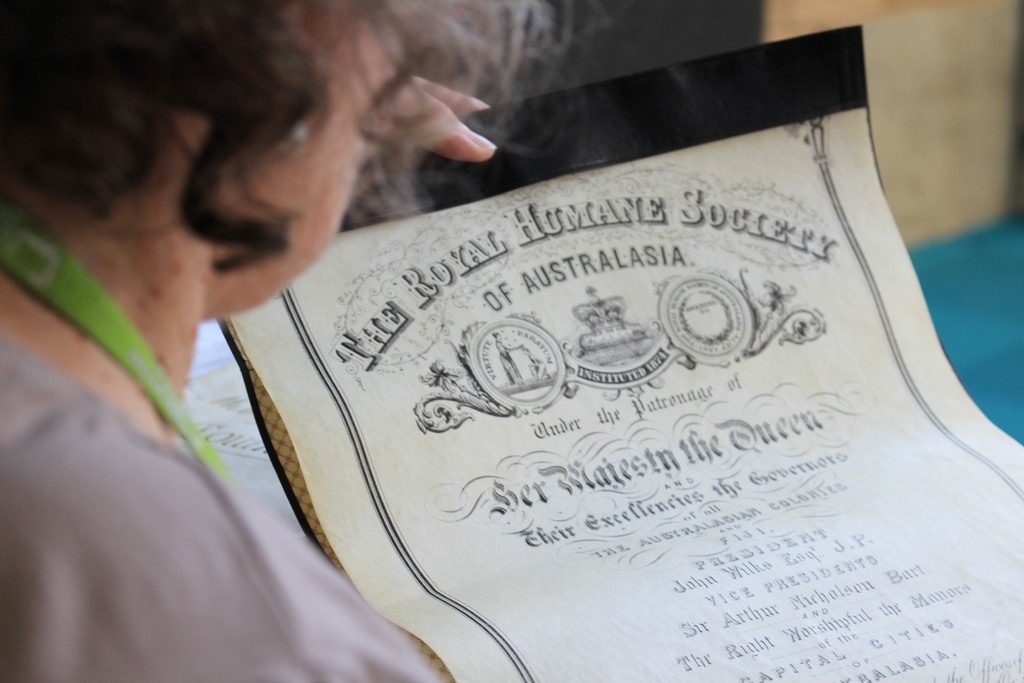 THE ROYAL HUMANE SOCIETY
OF AUSTRALASIA.
VIRTUTE PARATUM
INSTITUTED 1874
Under the Patronage of
Her Majesty the Queen
AND
Their Excellencies the Governors
of all
THE AUSTRALASIAN COLONIES
AND
FIJI.
PRESIDENT
John Wilks Esqr. J.P.
VICE PRESIDENTS
Sir Arthur Nicholson Bart.
AND
The Right Worshipful the Mayors
of the
CAPITAL CITIES
OF
the Officers of